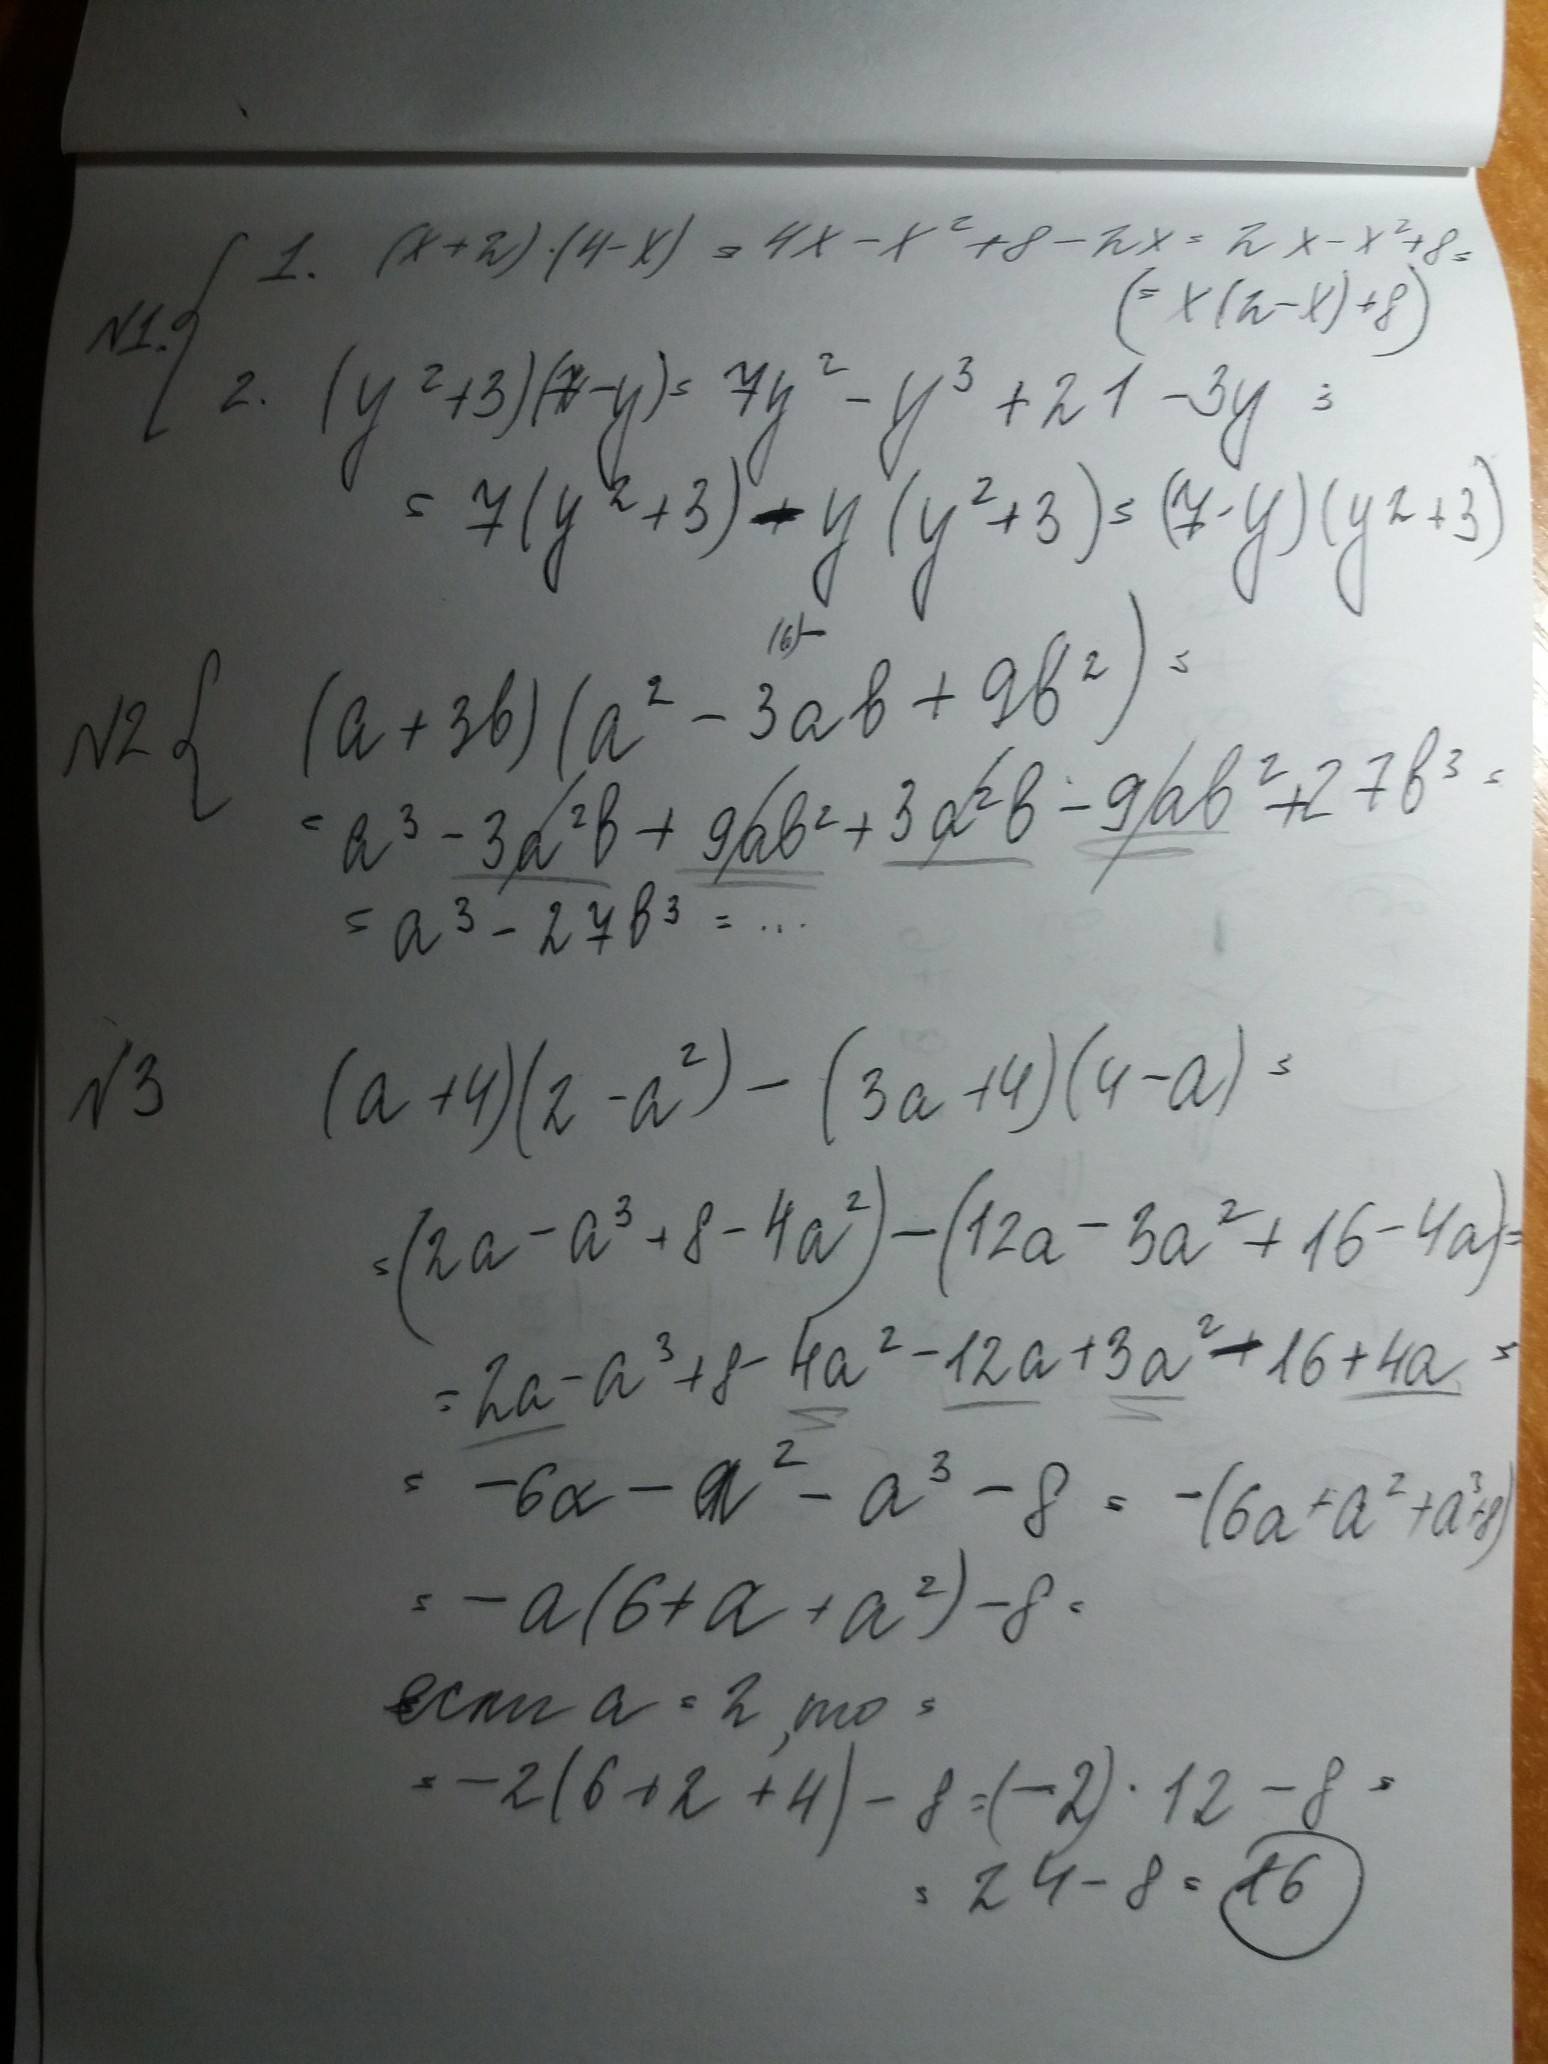 N1. 1. (x+2)·(4-x) = 4x-x²+8-2x = 2x-x²+8 =
(= x(2-x)+8)
2. (y²+3)(7-y) = 7y²-y³+21-3y =
= 7(y²+3) - y(y²+3) = (7-y)(y²+3)
N2 (a+3b)(a²-3ab+9b²) =
= a³-3a²b+9ab²+3a²b-9ab²+27b³ =
= a³-27b³ = ...
N3 (a+4)(2-a²)-(3a+4)(4-a) =
= (2a-a³+8-4a²)-(12a-3a²+16-4a) =
= 2a-a³+8-4a²-12a+3a²-16+4a =
= -6a-a²-a³-8 = -(6a+a²+a³+8)
= -a(6+a+a²)-8 =
если a = 2, то =
= -2(6+2+4)-8 = (-2)·12-8 =
= 24-8 = 16